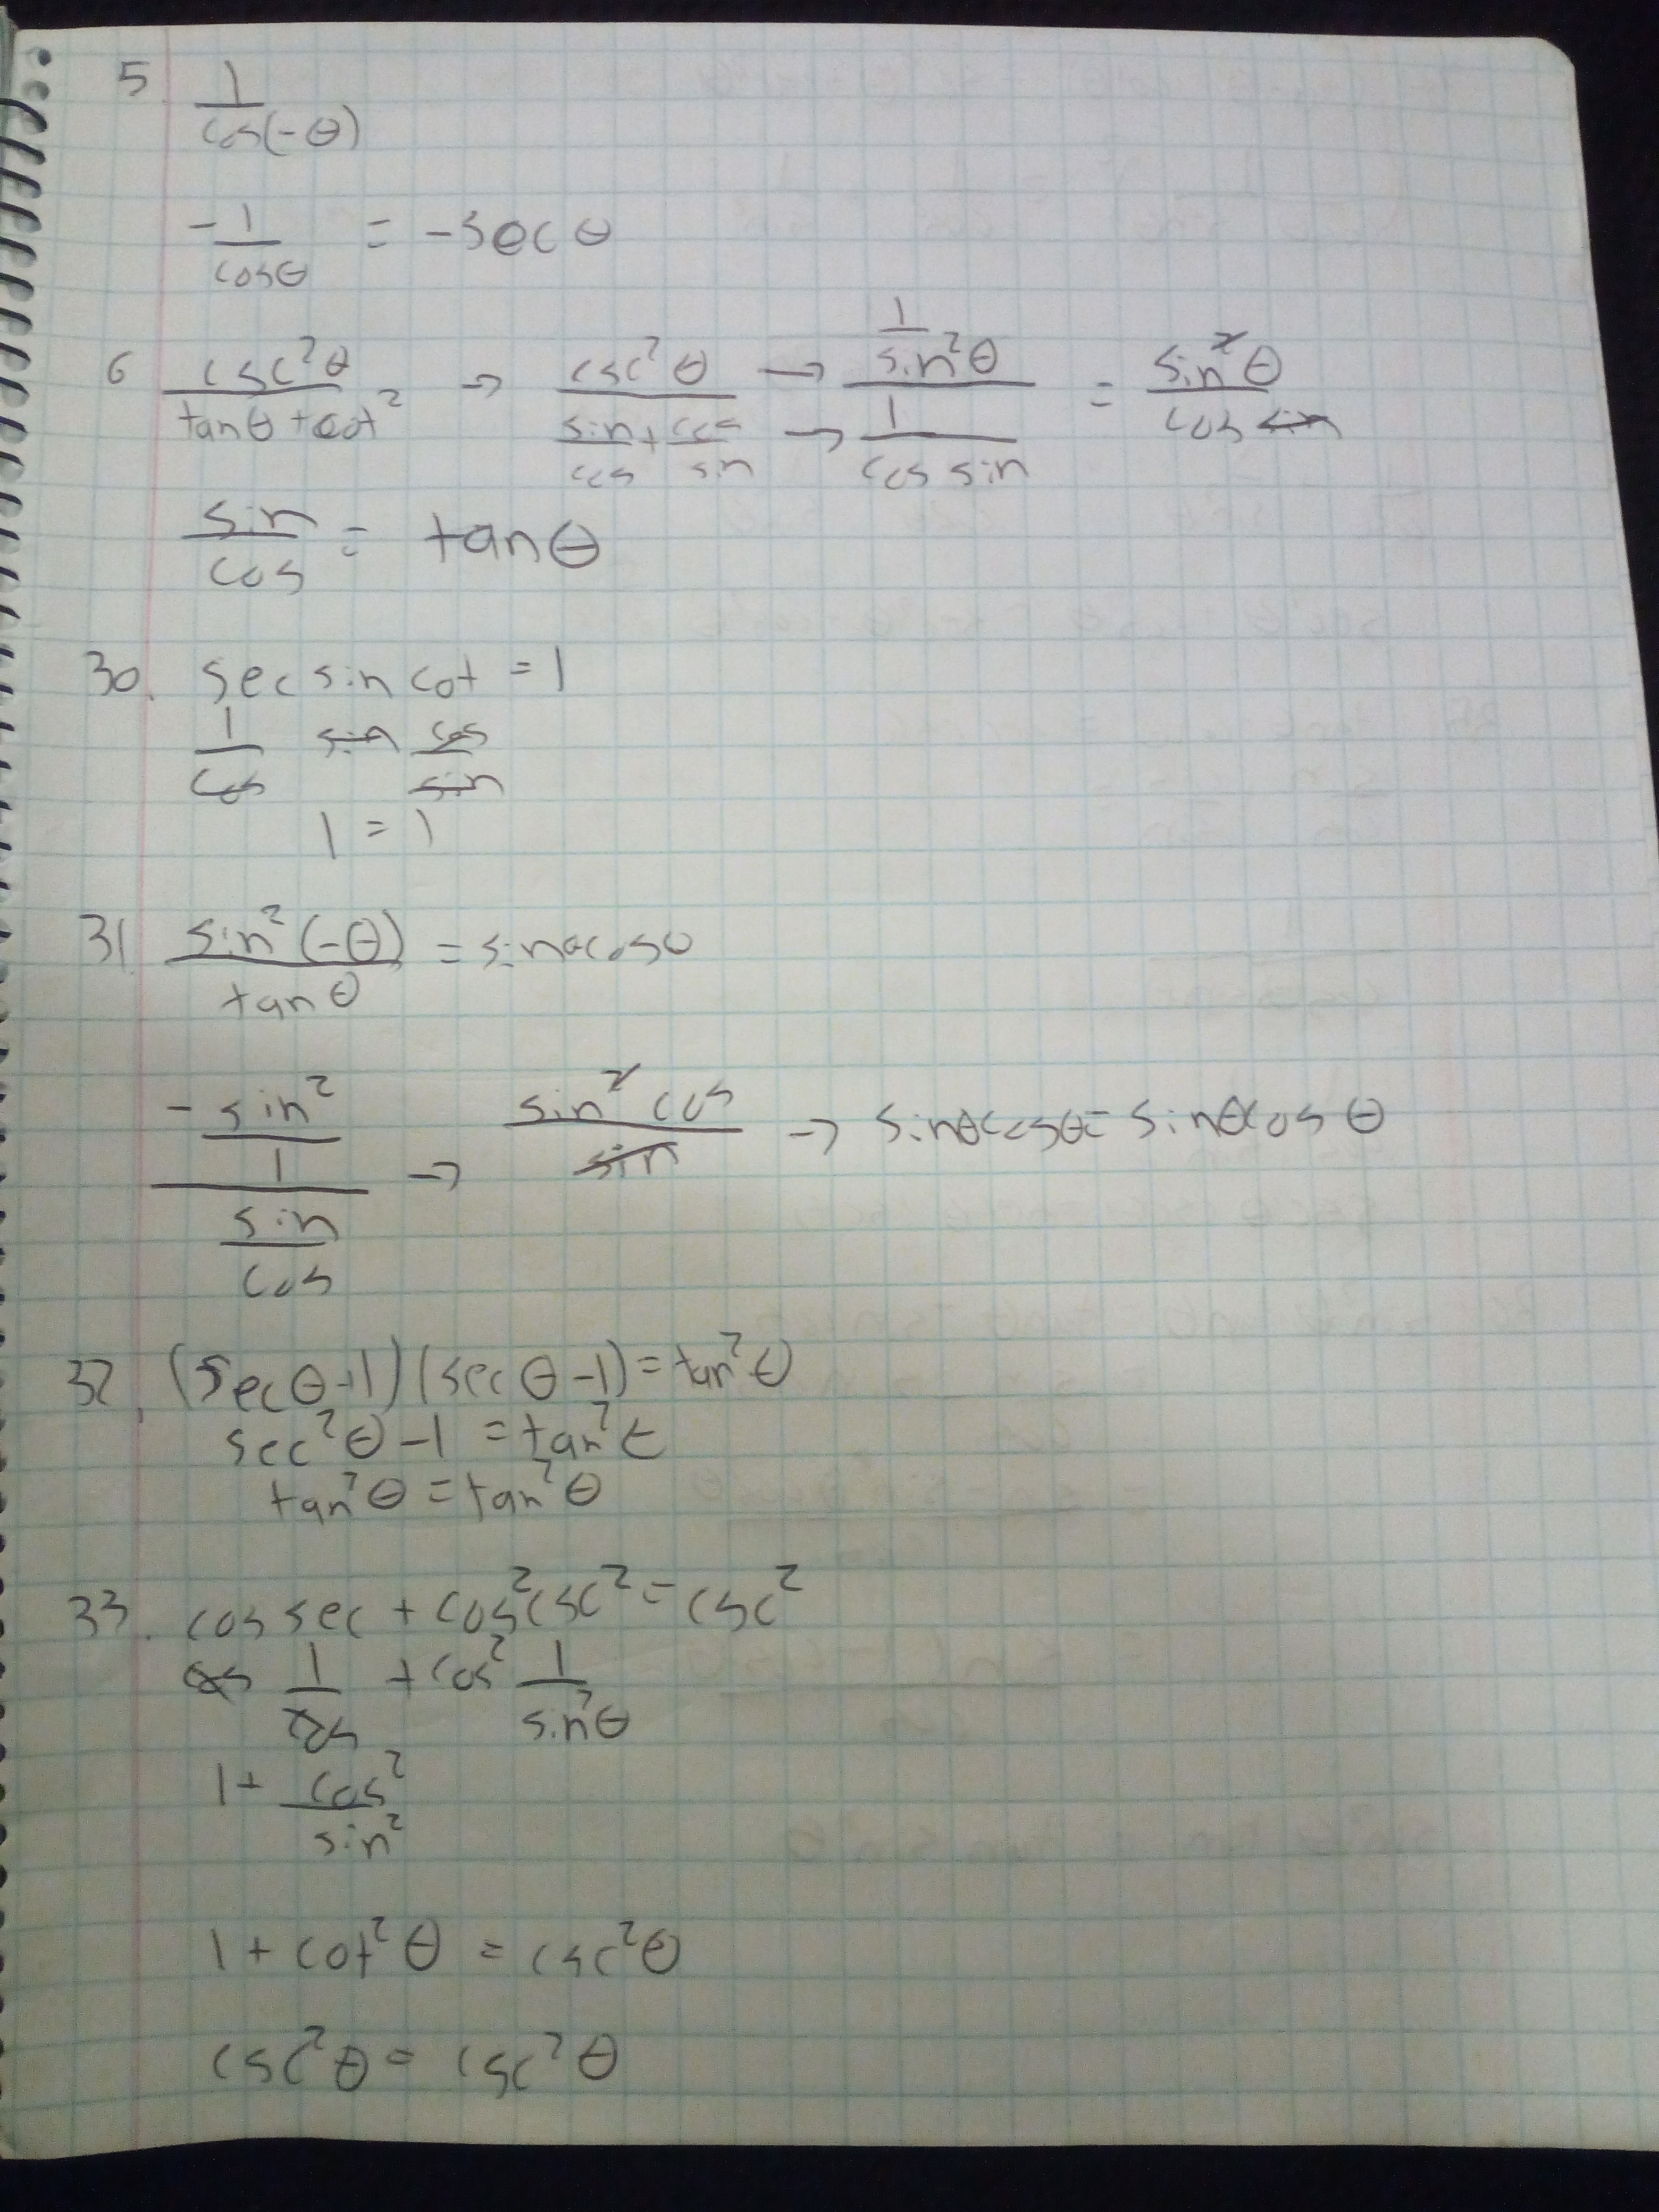 5. 1/cos(-θ)
-1/cosθ = -secθ
6 csc²θ/(tanθ+cot²) → csc²θ/(sin/cos + cos/sin) → (1/sin²θ)/(1/(cos sin)) = sin²θ/(cos sin)
sin/cos = tanθ
30. sec sin cot = 1
1/cos sin cos/sin
1 = 1
31. sin²(-θ)/tanθ = sinθcosθ
(-sin²/1)/(sin/cos) → sin² cos/sin → sinθcosθ = sinθcosθ
32. (secθ+1)(secθ-1)=tan²θ
sec²θ-1 = tan²θ
tan²θ = tan²θ
33. cos sec + cos²csc² = csc²
cos 1/cos + cos² 1/sin²θ
1+ cos²/sin²
1 + cot²θ = csc²θ
csc²θ = csc²θ